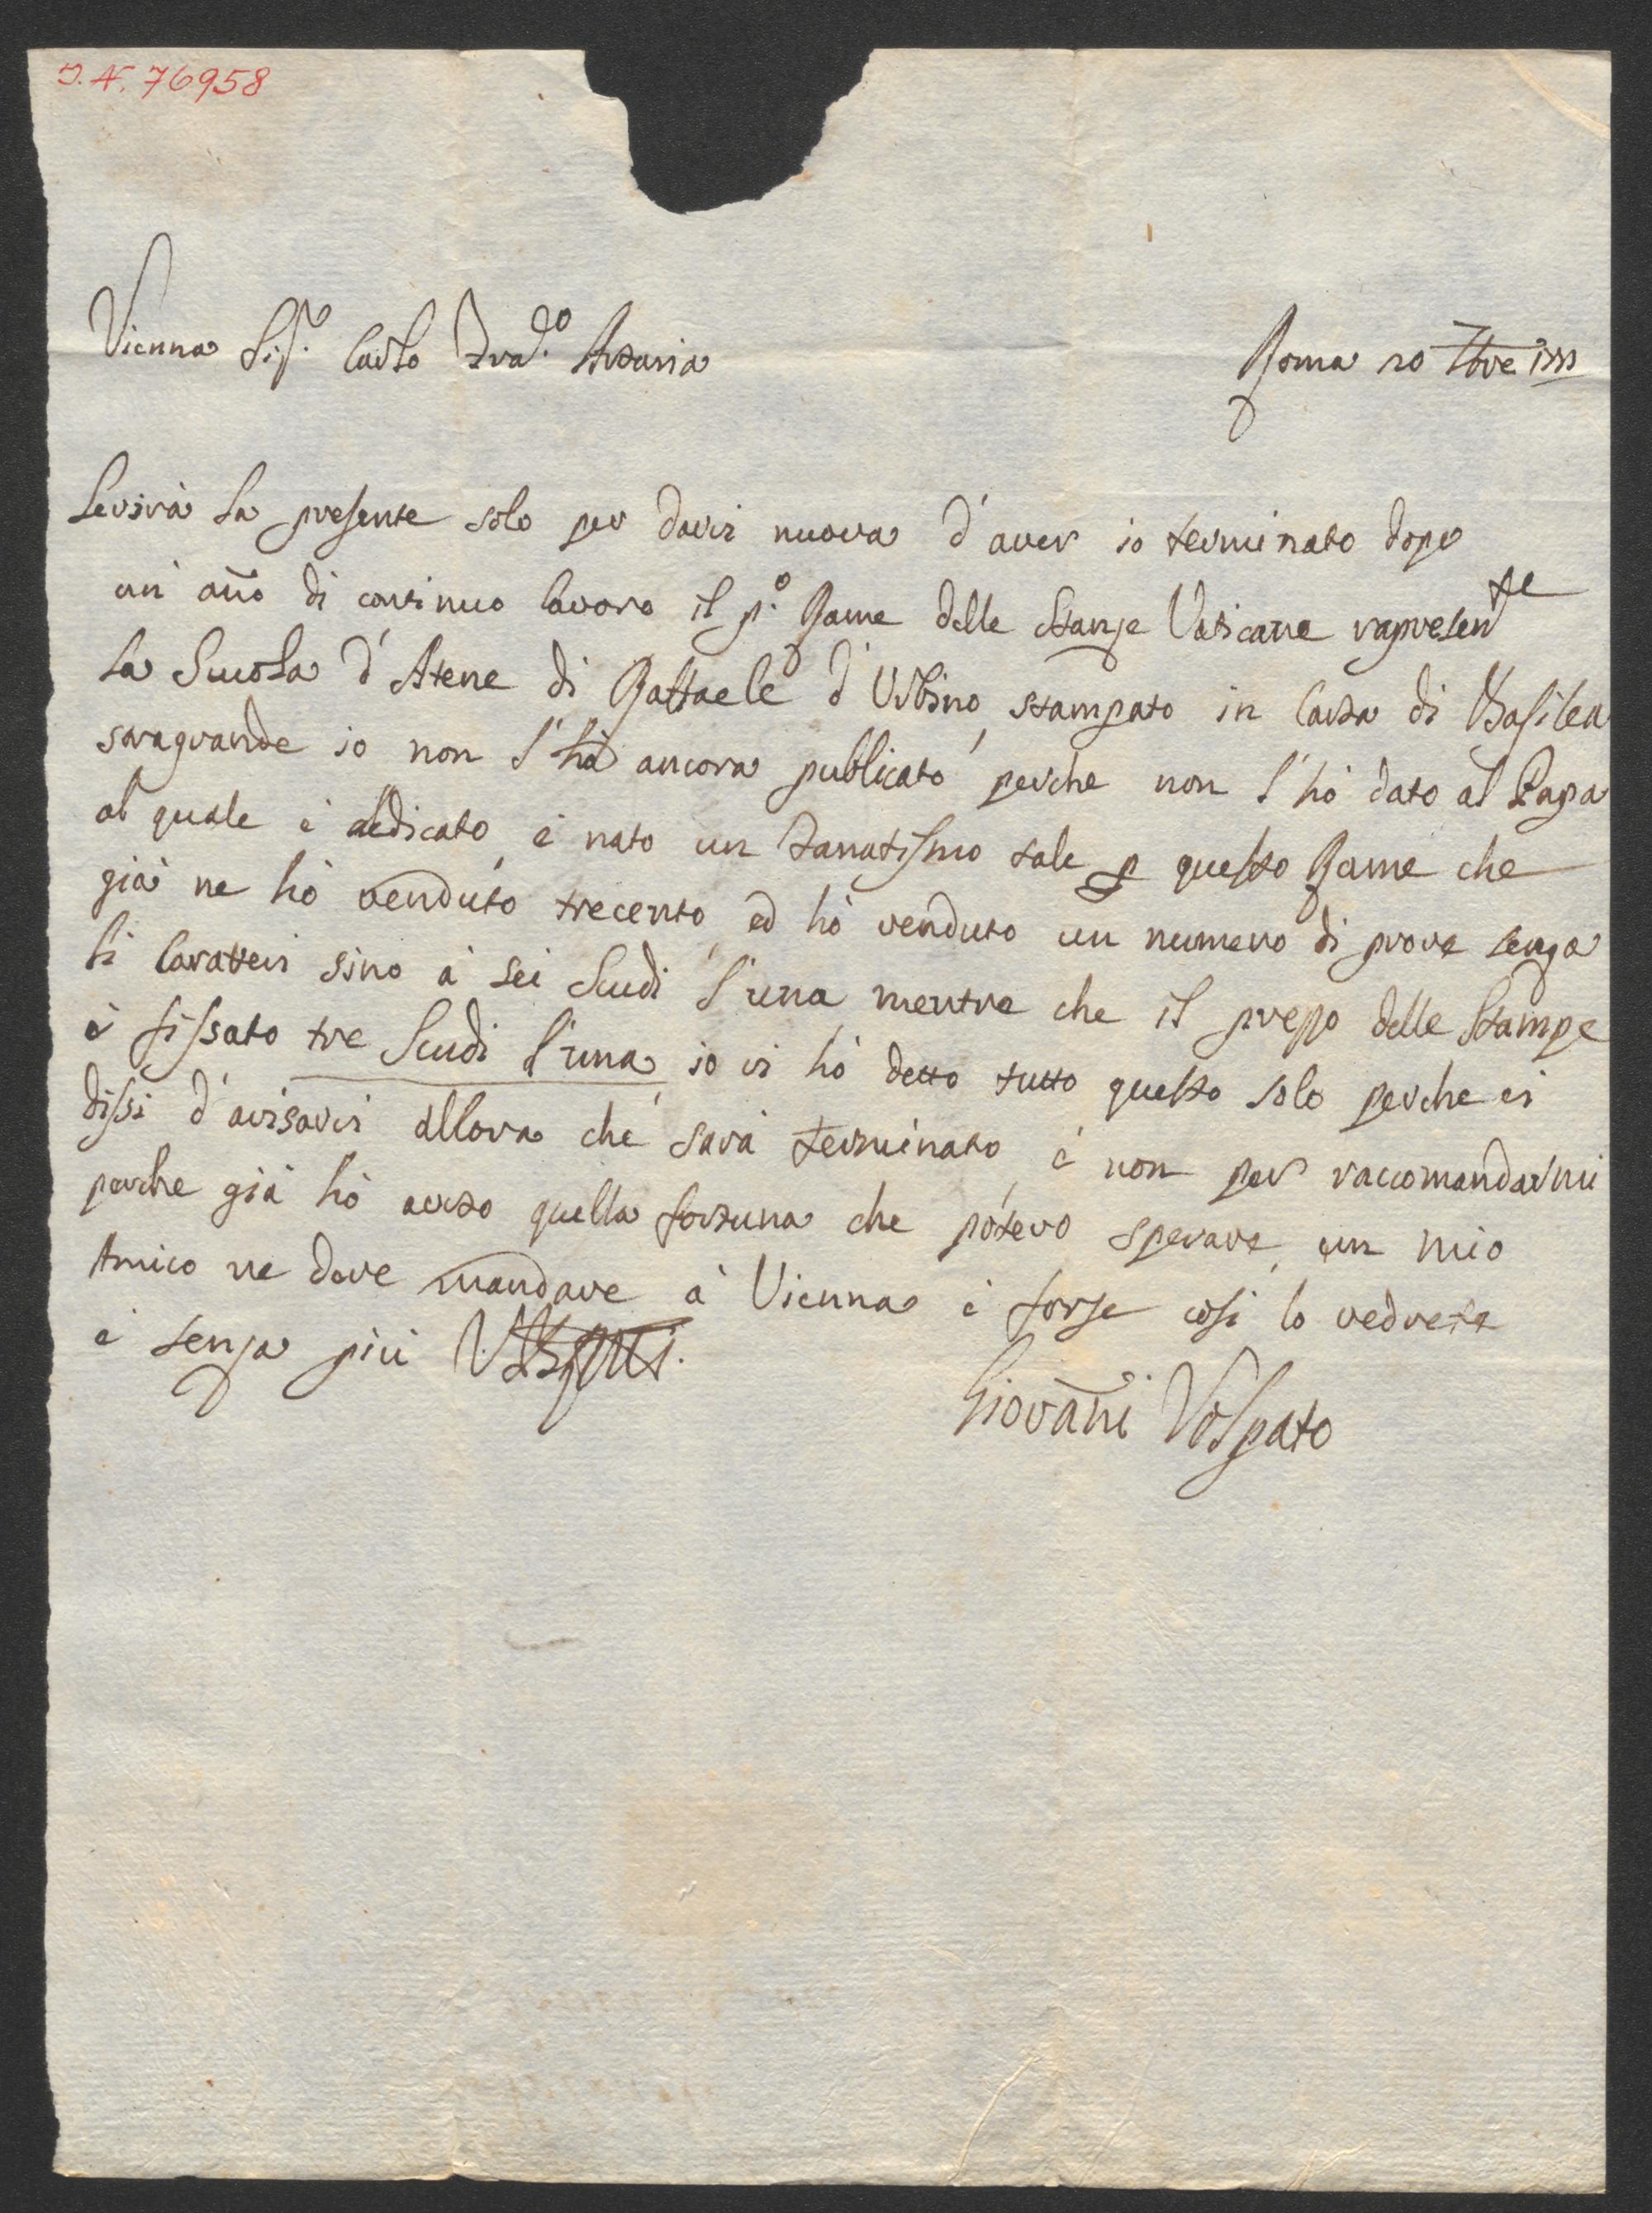 I. N. 76958
Vienna Sig.r Carlo Frã.co Artaria
Roma 20 7bre
Servirà la presente solo per darvi nuova d'aver io terminato dopo
un' año di continuo lavoro il p.o Rame delle Stanze Vaticane rapresen.te
la Scuola d'Atene di Raffaele d'Urbino, stampato in Carta di Basilea
soragrande io non l'hò ancora publicato, perche non l'hò dato al Papa
al quale è dedicato, è nato un fanatismo tale p questo Rame che
già ne hò venduto trecento, ed hò venduto un numero di prove senza
li Caratteri sino à sei Scudi l'una mentre che il prezzo delle Stampe
è fissato tre Scudi l'una, io vi hò detto tutto questo solo perche vi
dissi d'avisarvi allora che sarà terminato, è non per raccomandarmi
perche già hò avuto quella fortuna che potevo sperare, un mio
Amico ne deve mandare à Vienna è forse così lo vedrete
è senza più
Giovañi Volpato